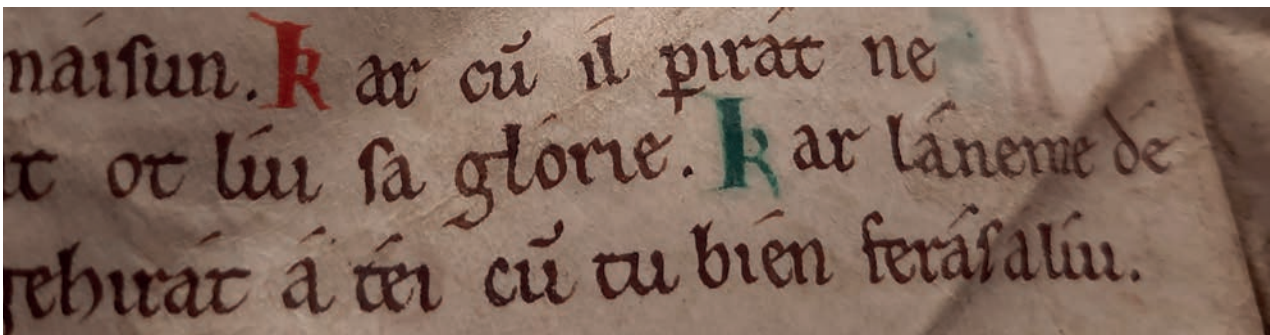 náiſun. Kar cū il ꝑirát ne
t ot lúi ſa glórie. Kar láneme dé
gehirát á téi cū tu bién feráſalúi.